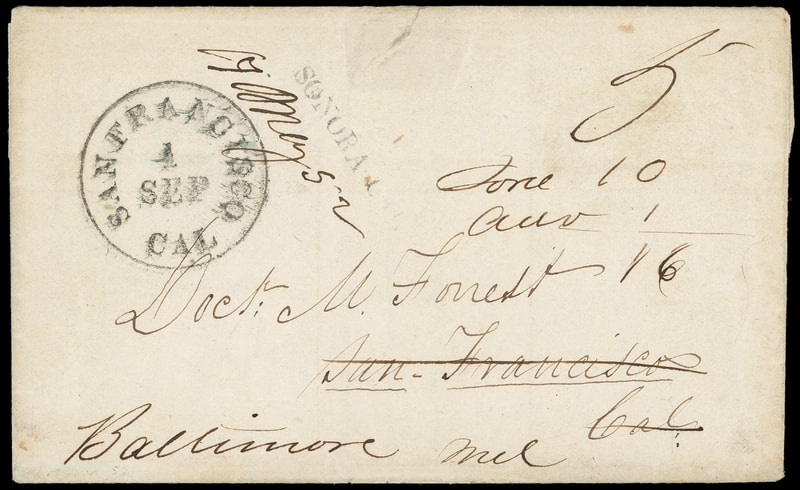 SAN FRANCISCO
1
SEP
CAL
SONORA
May 52
5
Fone 10
adv 1
16
Doct. M. Forrest
San-Francisco
Cal.
Baltimore Md